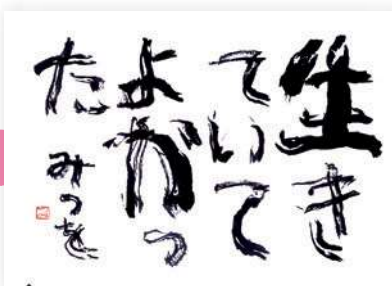 生き
ていて
よかっ
た
みつを